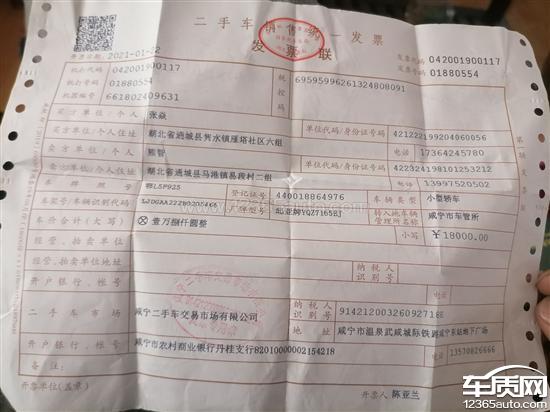 二手车销售统一发票
发票联
开票日期 2021-01-22
发票代码 042001900117
发票号码 01880554
机打代码 042001900117
机打号码 01880554
机器编号 661802409631
税控码 69595996261324808091
买方单位/个人 张焱 单位代码/身份证号码 421222199204060056
买方单位/个人住址 湖北省通城县隽水镇雁塔社区六组 电话 17364245780
卖方单位/个人 熊智 单位代码/身份证号码 422324198101253212
卖方单位/个人住址 湖北省通城县马港镇易段村二组 电话 13997520502
车牌照号 鄂L5P925 登记证号 440018864976 车辆类型 小型轿车
车架号/车辆识别代码 厂牌型号 起亚牌YQZ7165EJ 转入地车辆管理所名称 咸宁市车管所
车价合计(大写) ⊗壹万捌仟圆整 小写 ￥18000.00
经营、拍卖单位
经营、拍卖单位地址 纳税人识别号
开户银行、帐号 电话
二手车市场 咸宁二手车交易市场有限公司 纳税人识别号
地址 咸宁市温泉武咸城际铁路咸宁东站地下广场
开户银行、帐号 咸宁市农村商业银行丹桂支行82010000002154218 电话 13570826666
备注:
开票单位(盖章) 开票人 陈亚兰
车质网
12365auto.com